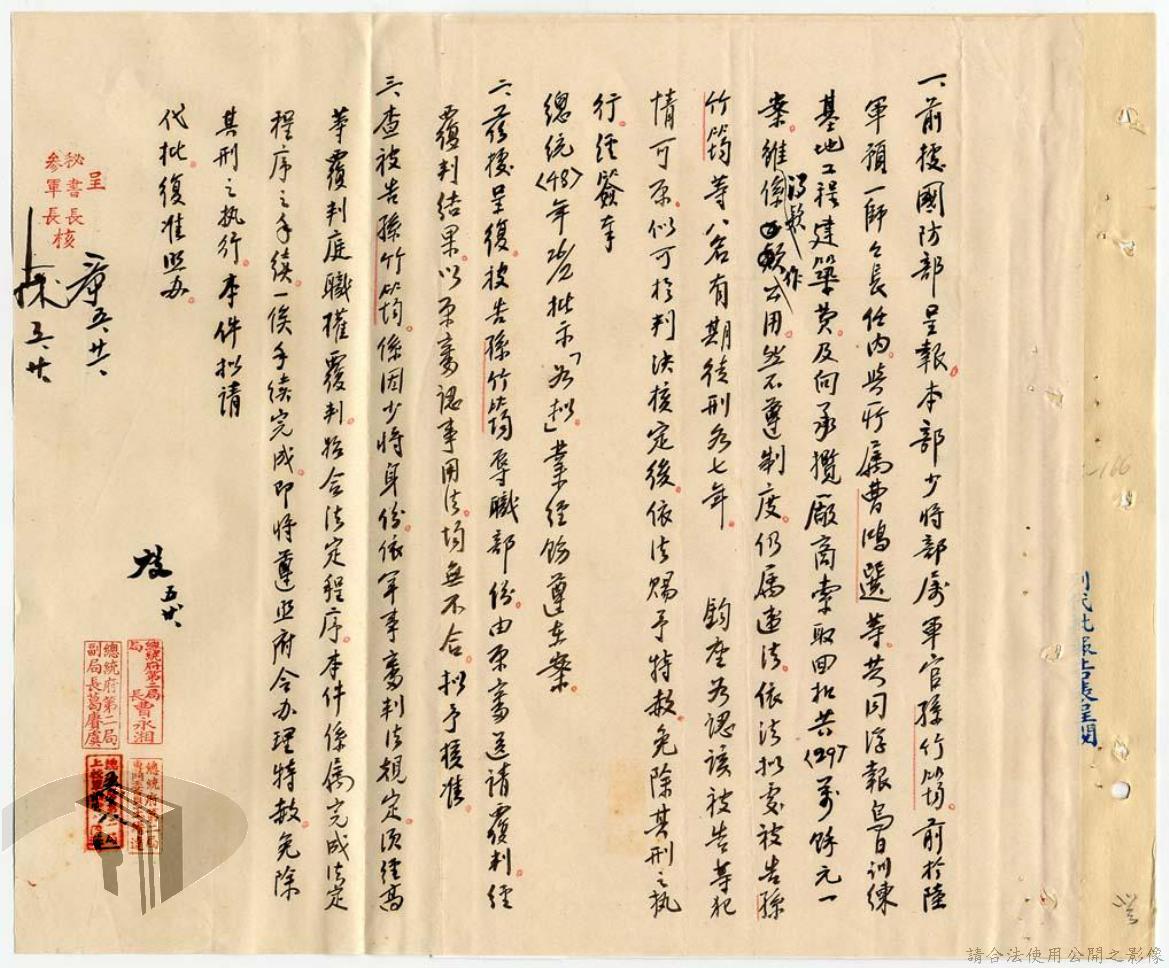 一、前據國防部呈報本部少將部屬軍官孫竹筠前於陸
軍預一師師長任內與所屬曹鴻選等共同浮報烏日訓練
基地工程建築費及向承攬廠商索取回扣共(29)萬餘元一
案雖係得款作公用然不遵制度仍屬違法依法拟處被告孫
竹筠等八名有期徒刑各七年 鈞座为認該被告等犯
情可原似可於判決核定後依法赐予特赦免除其刑之執
行經簽奉
總統(48)年 批示「为拟」業經飭遵在案
二、茲據呈復被告孫竹筠辱職部份由原審送請覆判經
覆判結果以原審認事用法均無不合拟予核准
三、查被告孫竹筠係因少將身份依軍事審判法規定須經高
等覆判庭職權覆判始合法定程序本件係屬完成法定
程序之手續一俟手續完成即將遵照府令办理特赦免除
其刑之執行本件拟請
代批復准照办
呈
秘書長
參軍長核
總統府第二局
局長曹永湘
總統府第二局
副局長葛賡虞
請合法使用公開之影像